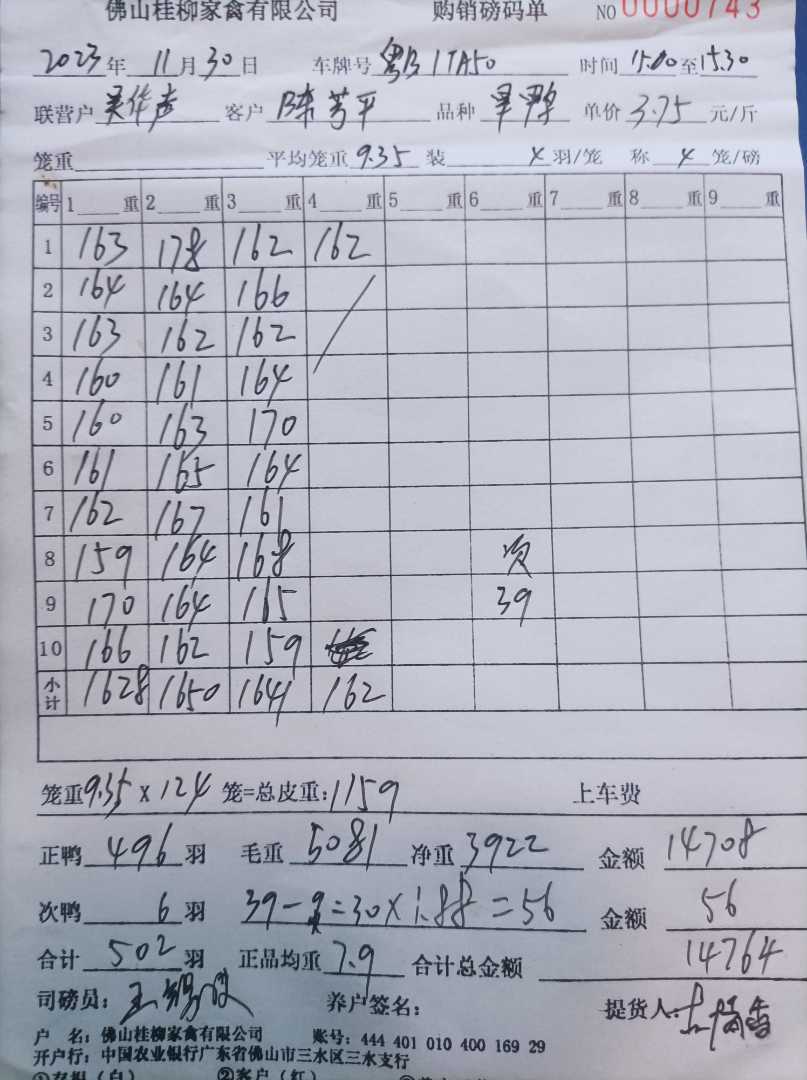 佛山桂柳家禽有限公司 购销磅码单 NO 0000743
2023年 11月30日 车牌号 粤B1TA50 时间 15.00至15.30
联营户 吴华声 客户 陈芳平 品种 单价 3.75 元/斤
笼重 平均笼重 9.35 装 4 羽/笼 称 4 笼/磅
编号 1 重 2 重 3 重 4 重 5 重 6 重 7 重 8 重 9 重
1 163 178 162 162
2 164 164 166
3 163 162 162
4 160 161 164
5 160 163 170
6 161 165 164
7 162 167 161
8 159 164 168 次
9 170 164 165 39
10 166 162 159
小计 1628 1650 1641 162
笼重9.35 x 124 笼=总皮重:1159 上车费
正鸭 496 羽 毛重 5081 净重 3922 金额 14708
次鸭 6 羽 39-9=30×1.88=56 金额 56
合计 502 羽 正品均重 7.9 合计总金额 14764
司磅员: 养户签名: 提货人:
户 名: 佛山桂柳家禽有限公司 账号: 444 401 010 400 169 29
开户行: 中国农业银行广东省佛山市三水区三水支行
①存根(白) ②客户(红)